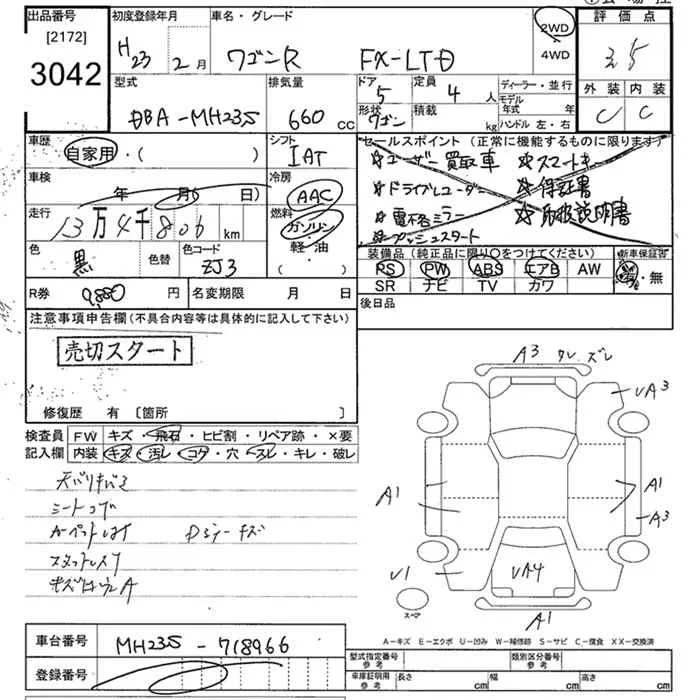 出品番号 初度登録年月 車名・グレード 2WD 評価点
[2172] H23年 2月 ワゴンR FX-LTD 4WD 3.5
3042
型式 排気量 ドア 定員 ディーラー・並行 外装 内装
DBA-MH23S 660cc 5 4人 モデル年式 年 C C
形状 ワゴン 積載 kg ハンドル 左・右
車歴 シフト セールスポイント(正常に機能するものに限ります)
自家用・( ) IAT ☆ユーザー買取車 ☆スマートキー
車検 冷房 ☆ドライブレコーダー ☆保証書
年 月( 日) AAC ☆電格ミラー ☆取扱説明書
走行 燃料 ☆プッシュスタート
13万4千806km ガソリン・軽・油・( )
色 色替 色コード 装備品(純正品に限り○をつけてください) 新車保証書
黒 ZJ3 PS PW ABS エアB AW 有・無
SR ナビ TV カワ
R券 9,880円 名変期限 月 日 後日品
注意事項申告欄(不具合内容等は具体的に記入して下さい)
売切スタート
修復歴 有〔箇所 〕
検査員 FW キズ・飛石・ヒビ割・リペア跡・×要
記入欄 内装 キズ・汚レ・コゲ・穴・スレ・キレ・破レ
シートコゲ
カーペットハゲ Dシートキズ
A3 ズレ
UA3
A1 A1
A3
U1 UA4
スペア
A1
A-キズ E-エクボ U-凹み W-補修跡 S-サビ C-腐食 XX-交換済
車台番号 MH23S-718966
登録番号
型式指定番号 参考 類別区分番号 参考
車庫証明用 参考 長さ cm 幅 cm 高さ cm